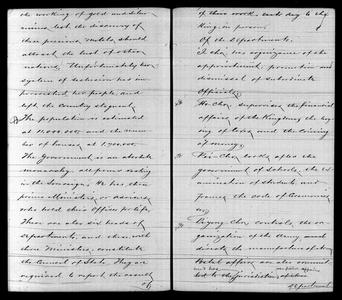 the working of gold and silver
mines, lest the discovery of
these precious metals should
attract the lust of other
nations. Unfortunately her
system of seclusion has im-
poverished her people, and
left the country stagnant.
The population is estimated
at 12,000,000 and the num-
ber of houses at 1,700,000.
The Government is an absolute
monarchy, all power resting
in the Sovereign. He has three
prime Ministers, or advisers
who hold their Offices for life.
There are also six heads of
departments, and these, with
three Ministers, constitute
the Council of State. They are
required to report the result
of
of their work each day to the
King in person.
Of the departments.
In Cho, has cognizance of the
appointment, promotion and
dismissal of subordinate
Officials.
Ho Cho, supervises the financial
affairs of the Kingdom, the lay-
ing of taxes and the coining
of money.
Rei Cho looks after the
government of Schools, the ex-
amination of students and
frames the code of Ceremonies.
Piyong Cho, controls, the or-
ganization of the Army and
directs the
Postal affairs are also
to the jurisdiction of this
department